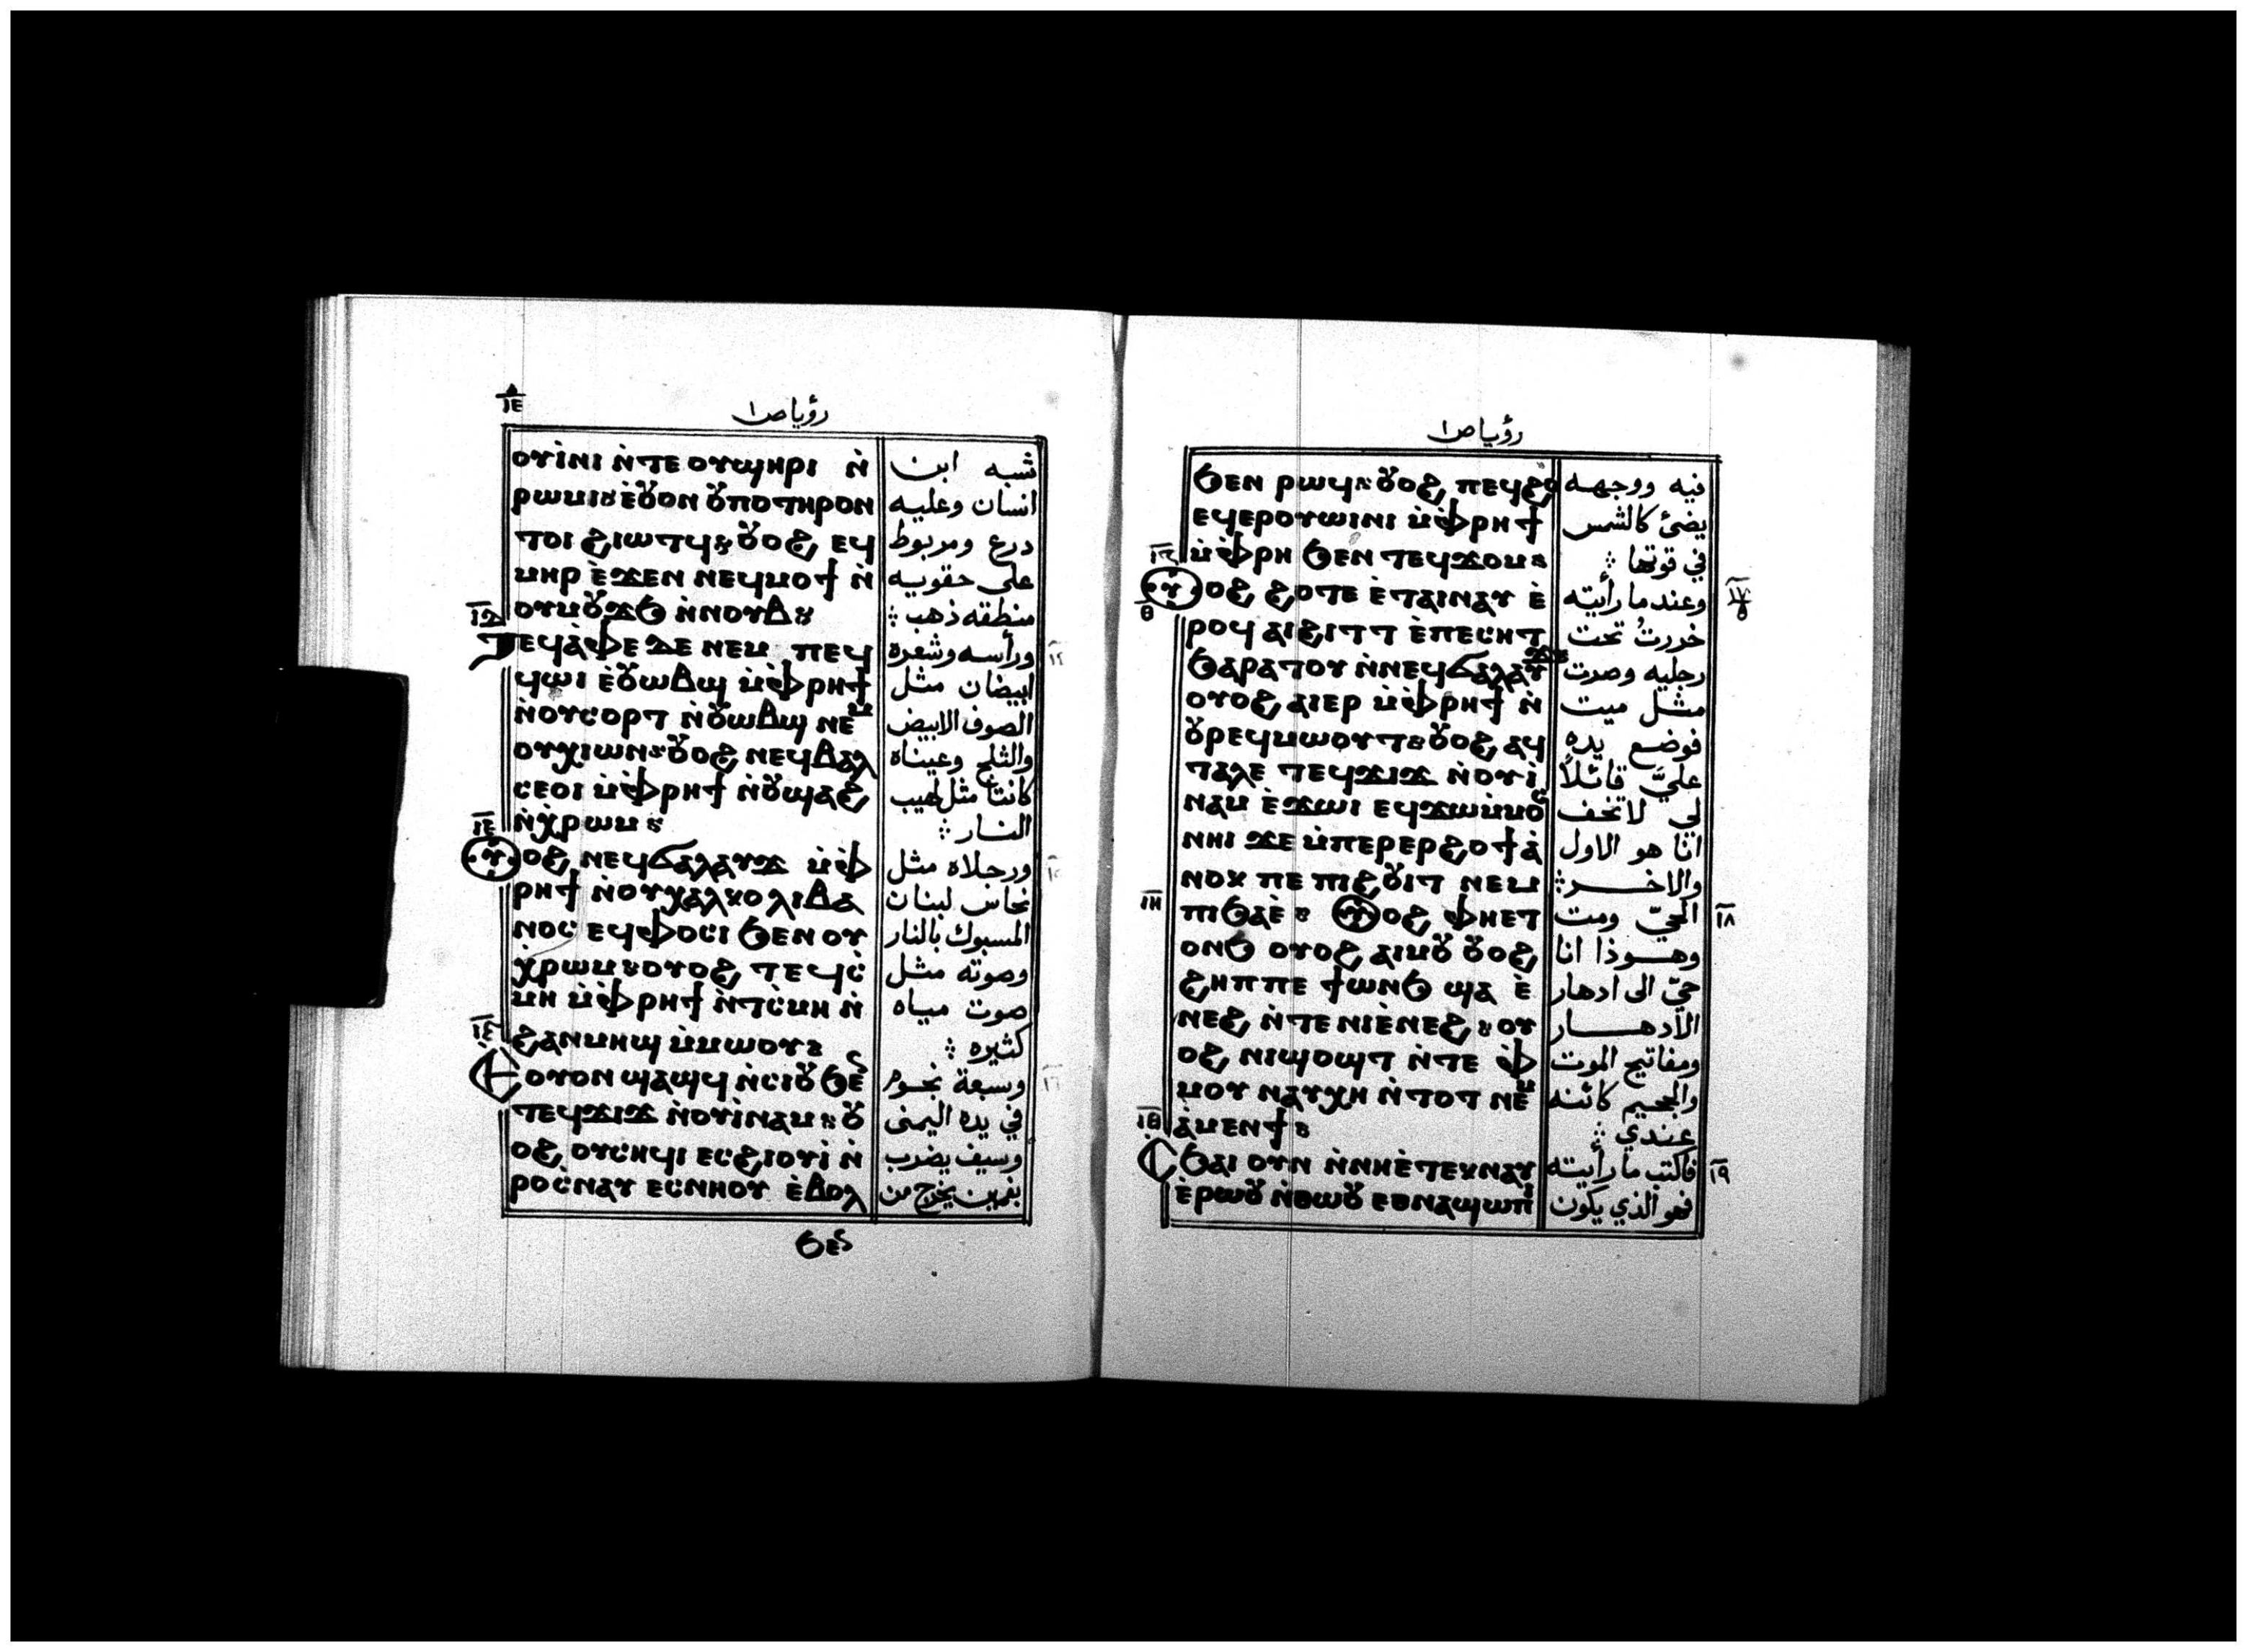 ⲓⲉ
رؤيا ص١
ⲟⲩⲓ̀ⲛⲓ ⲛ̀ⲧⲉ ⲟⲩϣⲏⲣⲓ ⲛ̀
ⲣⲱⲙⲓ ⲉ̀ⲟⲩⲟⲛ ⲟⲩⲡⲟⲧⲏⲣⲟⲛ
ⲧⲟⲓ ϩⲓⲱⲧϥ ⲟⲩⲟϩ ⲉϥ
ⲙⲏⲣ ⲉ̀ϫⲉⲛ ⲛⲉϥⲙⲟϯ ⲛ̀
ⲟⲩⲙⲟⲩϫϧ ⲛ̀ⲛⲟⲩⲃ
ⲧⲉϥⲁ̀ⲫⲉ ⲇⲉ ⲛⲉⲙ ⲡⲉϥ
ϥⲱⲓ ⲉ̀ⲟⲩⲱⲃϣ ⲙ̀ⲫ̀ⲣⲏϯ
ⲛ̀ⲟⲩⲥⲟⲣⲧ ⲛ̀ⲟⲩⲱⲃϣ ⲛⲉⲙ
ⲟⲩⲭⲓⲱⲛ ⲟⲩⲟϩ ⲛⲉϥⲃⲁⲗ
ⲥⲉⲟⲓ ⲙ̀ⲫ̀ⲣⲏϯ ⲛ̀ⲟⲩϣⲁϩ
ⲛ̀ⲭ̀ⲣⲱⲙ
ⲟⲩⲟϩ ⲛⲉϥϭⲁⲗⲁⲩϫ ⲙ̀ⲫ̀
ⲣⲏϯ ⲛ̀ⲟⲩⲭⲁⲗⲕⲟⲗⲓⲃⲁ
ⲛⲟⲥ ⲉϥⲫⲟⲥⲓ ϧⲉⲛ ⲟⲩ
ⲭⲣⲱⲙ ⲟⲩⲟϩ ⲧⲉϥⲥ̀
ⲙⲏ ⲙ̀ⲫ̀ⲣⲏϯ ⲛ̀ⲧⲥ̀ⲙⲏ ⲛ̀
ϩⲁⲛⲙⲏϣ ⲙ̀ⲙⲱⲟⲩ
ⲉⲟⲩⲟⲛ ϣⲁϣϥ ⲛ̀ⲥⲓⲟⲩ ϧⲉⲛ
ⲧⲉϥϫⲓϫ ⲛ̀ⲟⲩⲓ̀ⲛⲁⲙ ⲟⲩ
ⲟϩ ⲟⲩⲥⲏϥⲓ ⲉⲥϩⲓⲟⲩⲓ̀ ⲛ̀
ⲣⲟⲥ̀ⲛⲁⲩ ⲉⲥⲛⲏⲟⲩ ⲉ̀ⲃⲟⲗ
ϧⲉⲛ
شبه ابن
انسان وعليه
درع ومربوط
على حقويه
منطقه ذهب
ورأسه وشعره
ابيضان مثل
الصوف الابيض
والثلج وعيناه
كانتا مثل لهيب
النار
ورجلاه مثل
نحاس لبنان
المسبوك بالنار
وصوته مثل
صوت مياه
كثيره
وسبعة نجوم
في يده اليمنى
وسيف يضرب
بفمين يخرج من
رؤيا ص١
ϧⲉⲛ ⲣⲱϥ ⲟⲩⲟϩ ⲡⲉϥϩⲟ
ⲉϥⲉⲣⲟⲩⲱⲓⲛⲓ ⲙ̀ⲫ̀ⲣⲏϯ
ⲙ̀ⲫ̀ⲣⲏ ϧⲉⲛ ⲧⲉϥϫⲟⲙ
ⲟⲩⲟϩ ϩⲟⲧⲉ ⲉ̀ⲧⲁⲓⲛⲁⲩ ⲉ̀
ⲣⲟϥ ⲁⲓϩⲓⲧⲧ ⲉ̀ⲡⲉⲥⲏⲧ
ϧⲁⲣⲁⲧⲟⲩ ⲛ̀ⲛⲉϥϭⲁⲗⲁⲩϫ
ⲟⲩⲟϩ ⲁⲓⲉⲣ ⲙ̀ⲫ̀ⲣⲏϯ ⲛ̀
ⲟⲩⲣⲉϥⲙⲱⲟⲩⲧ ⲟⲩⲟϩ ⲁϥ
ⲧⲁⲗⲉ ⲧⲉϥϫⲓϫ ⲛ̀ⲟⲩⲓ̀
ⲛⲁⲙ ⲉ̀ϫⲱⲓ ⲉϥϫⲱⲙ̀ⲙⲟⲥ
ⲛⲏⲓ ϫⲉ ⲙ̀ⲡⲉⲣⲉⲣϩⲟϯ ⲁ̀
ⲛⲟⲕ ⲡⲉ ⲡⲓϩⲟⲩⲓⲧ ⲛⲉⲙ
ⲡⲓϧⲁⲉ̀ ⲟⲩⲟϩ ⲫⲏⲉⲧ
ⲟⲛϧ ⲟⲩⲟϩ ⲁⲓⲙⲟⲩ ⲟⲩⲟϩ
ϩⲏⲡⲡⲉ ϯⲱⲛϧ ϣⲁ ⲉ̀
ⲛⲉϩ ⲛ̀ⲧⲉ ⲛⲓⲉ̀ⲛⲉϩ ⲟⲩ
ⲟϩ ⲛⲓϣⲟϣⲧ ⲛ̀ⲧⲉ ⲫ̀
ⲙⲟⲩ ⲛⲁⲩⲭⲏ ⲛ̀ⲧⲟⲧ ⲛⲉⲙ
ⲁ̀ⲙⲉⲛϯ
ⲥϧⲁⲓ ⲟⲩⲛ ⲛ̀ⲛⲏⲉ̀ⲧⲉⲕⲛⲁⲩ
ⲉ̀ⲣⲱⲟⲩ ⲛ̀ⲑⲱⲟⲩ ⲉⲑⲛⲁϣⲱⲡⲓ
فيه ووجهه
يضئ كالشمس
في قوتها
وعندما رأيته
خررت تحت
رجليه وصرت
مثل ميت
فوضع يده
عليّ قائلاً
لي لا تخف
انا هو الاول
والاخر
الحيّ ومت
وهوذا انا
حيّ الى ادهار
الادهار
ومفاتيح الموت
والجحيم كائنه
عندي
فاكتب ما رأيته
فهو الذي يكون
١٧
١٨
١٩